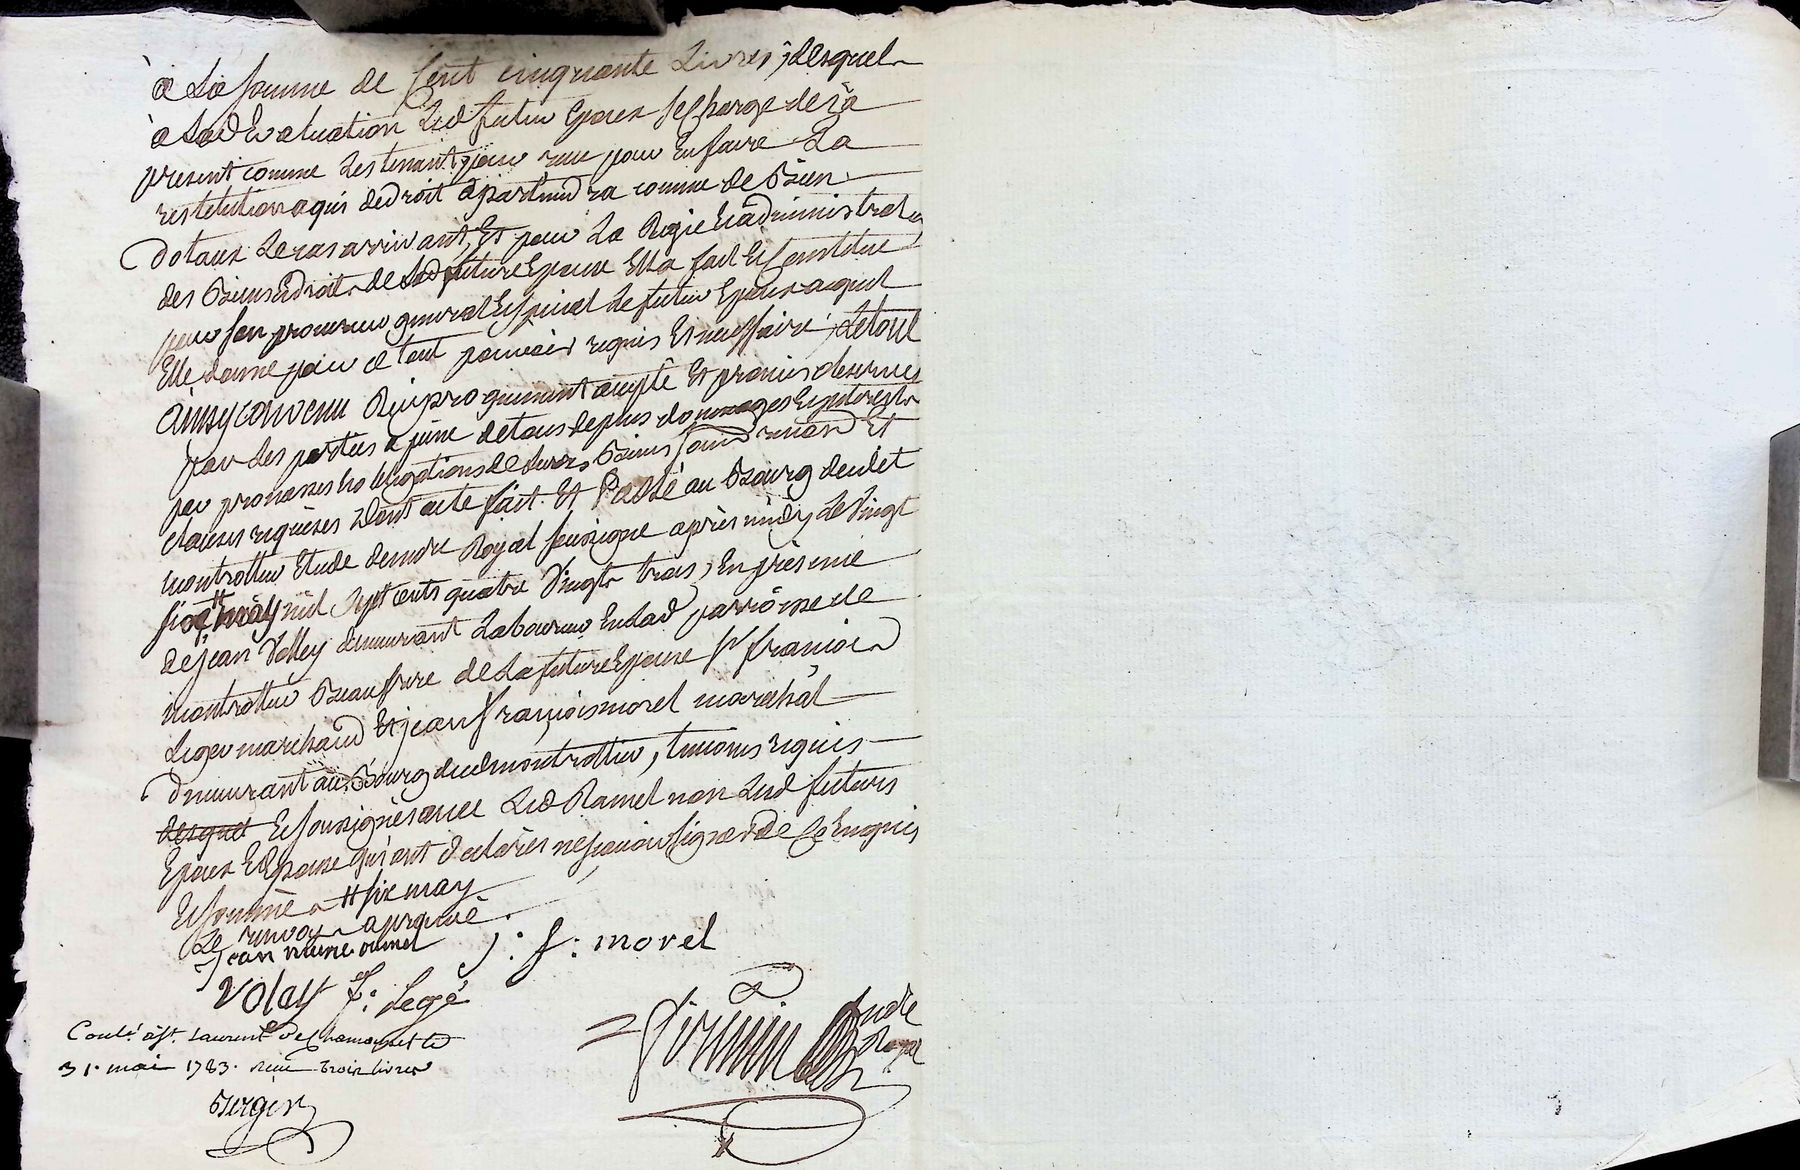 à La somme de Cent cinquante Livres, desquels
à Lad Evaluation Led futur Epoux se Charge dez à
present comme Les tenant pour reçu pour En faire La
restitution a qui de droit apartiendra comme de Bien
Dotaux Le cas arrivant, Et pour La Regie Et administration
des Biens Et droits de Lad future Epouse Elle a fait Et Constitué
pour son procureur general Et special Le futur Epoux auquel
Elle donne pour ce tout pouvoir requis Et necessaire, Le tout
ainsy convenu Reciproquement accepté Et promis observer
par Les parties a peine de tous depens dommages Et interests
par promesses obligations de Leurs Biens soumis renon Et
clauses requises Dont acte fait Et Passé au Bourg dudit
montrottier Etude du nore Royal soussigné après midy Le vingt
six may mil sept cents quatre Vingts trois, En présence
de jean Volley demeurant Laboureur En Lad parroisse de
montrottier Beaufrere de La future Epouse sr françois
Leger marchand Et jean françois morel marechal
Demeurant au Bourg dud montrottier, temoins requis
desquel Et soussignés avec Led Ramel non Lesd futurs
Epoux Et Epouse qui ont declarés ne sçavoir signer de Ce Enquis
Et sommé ~ # six may
Le renvoy approuvé
J: f: morel
volay f: Legé
firmin
nore Royal
Coule. à St. Laurent de Chamousset le
31. mai 1783. reçu trois livres
Berger